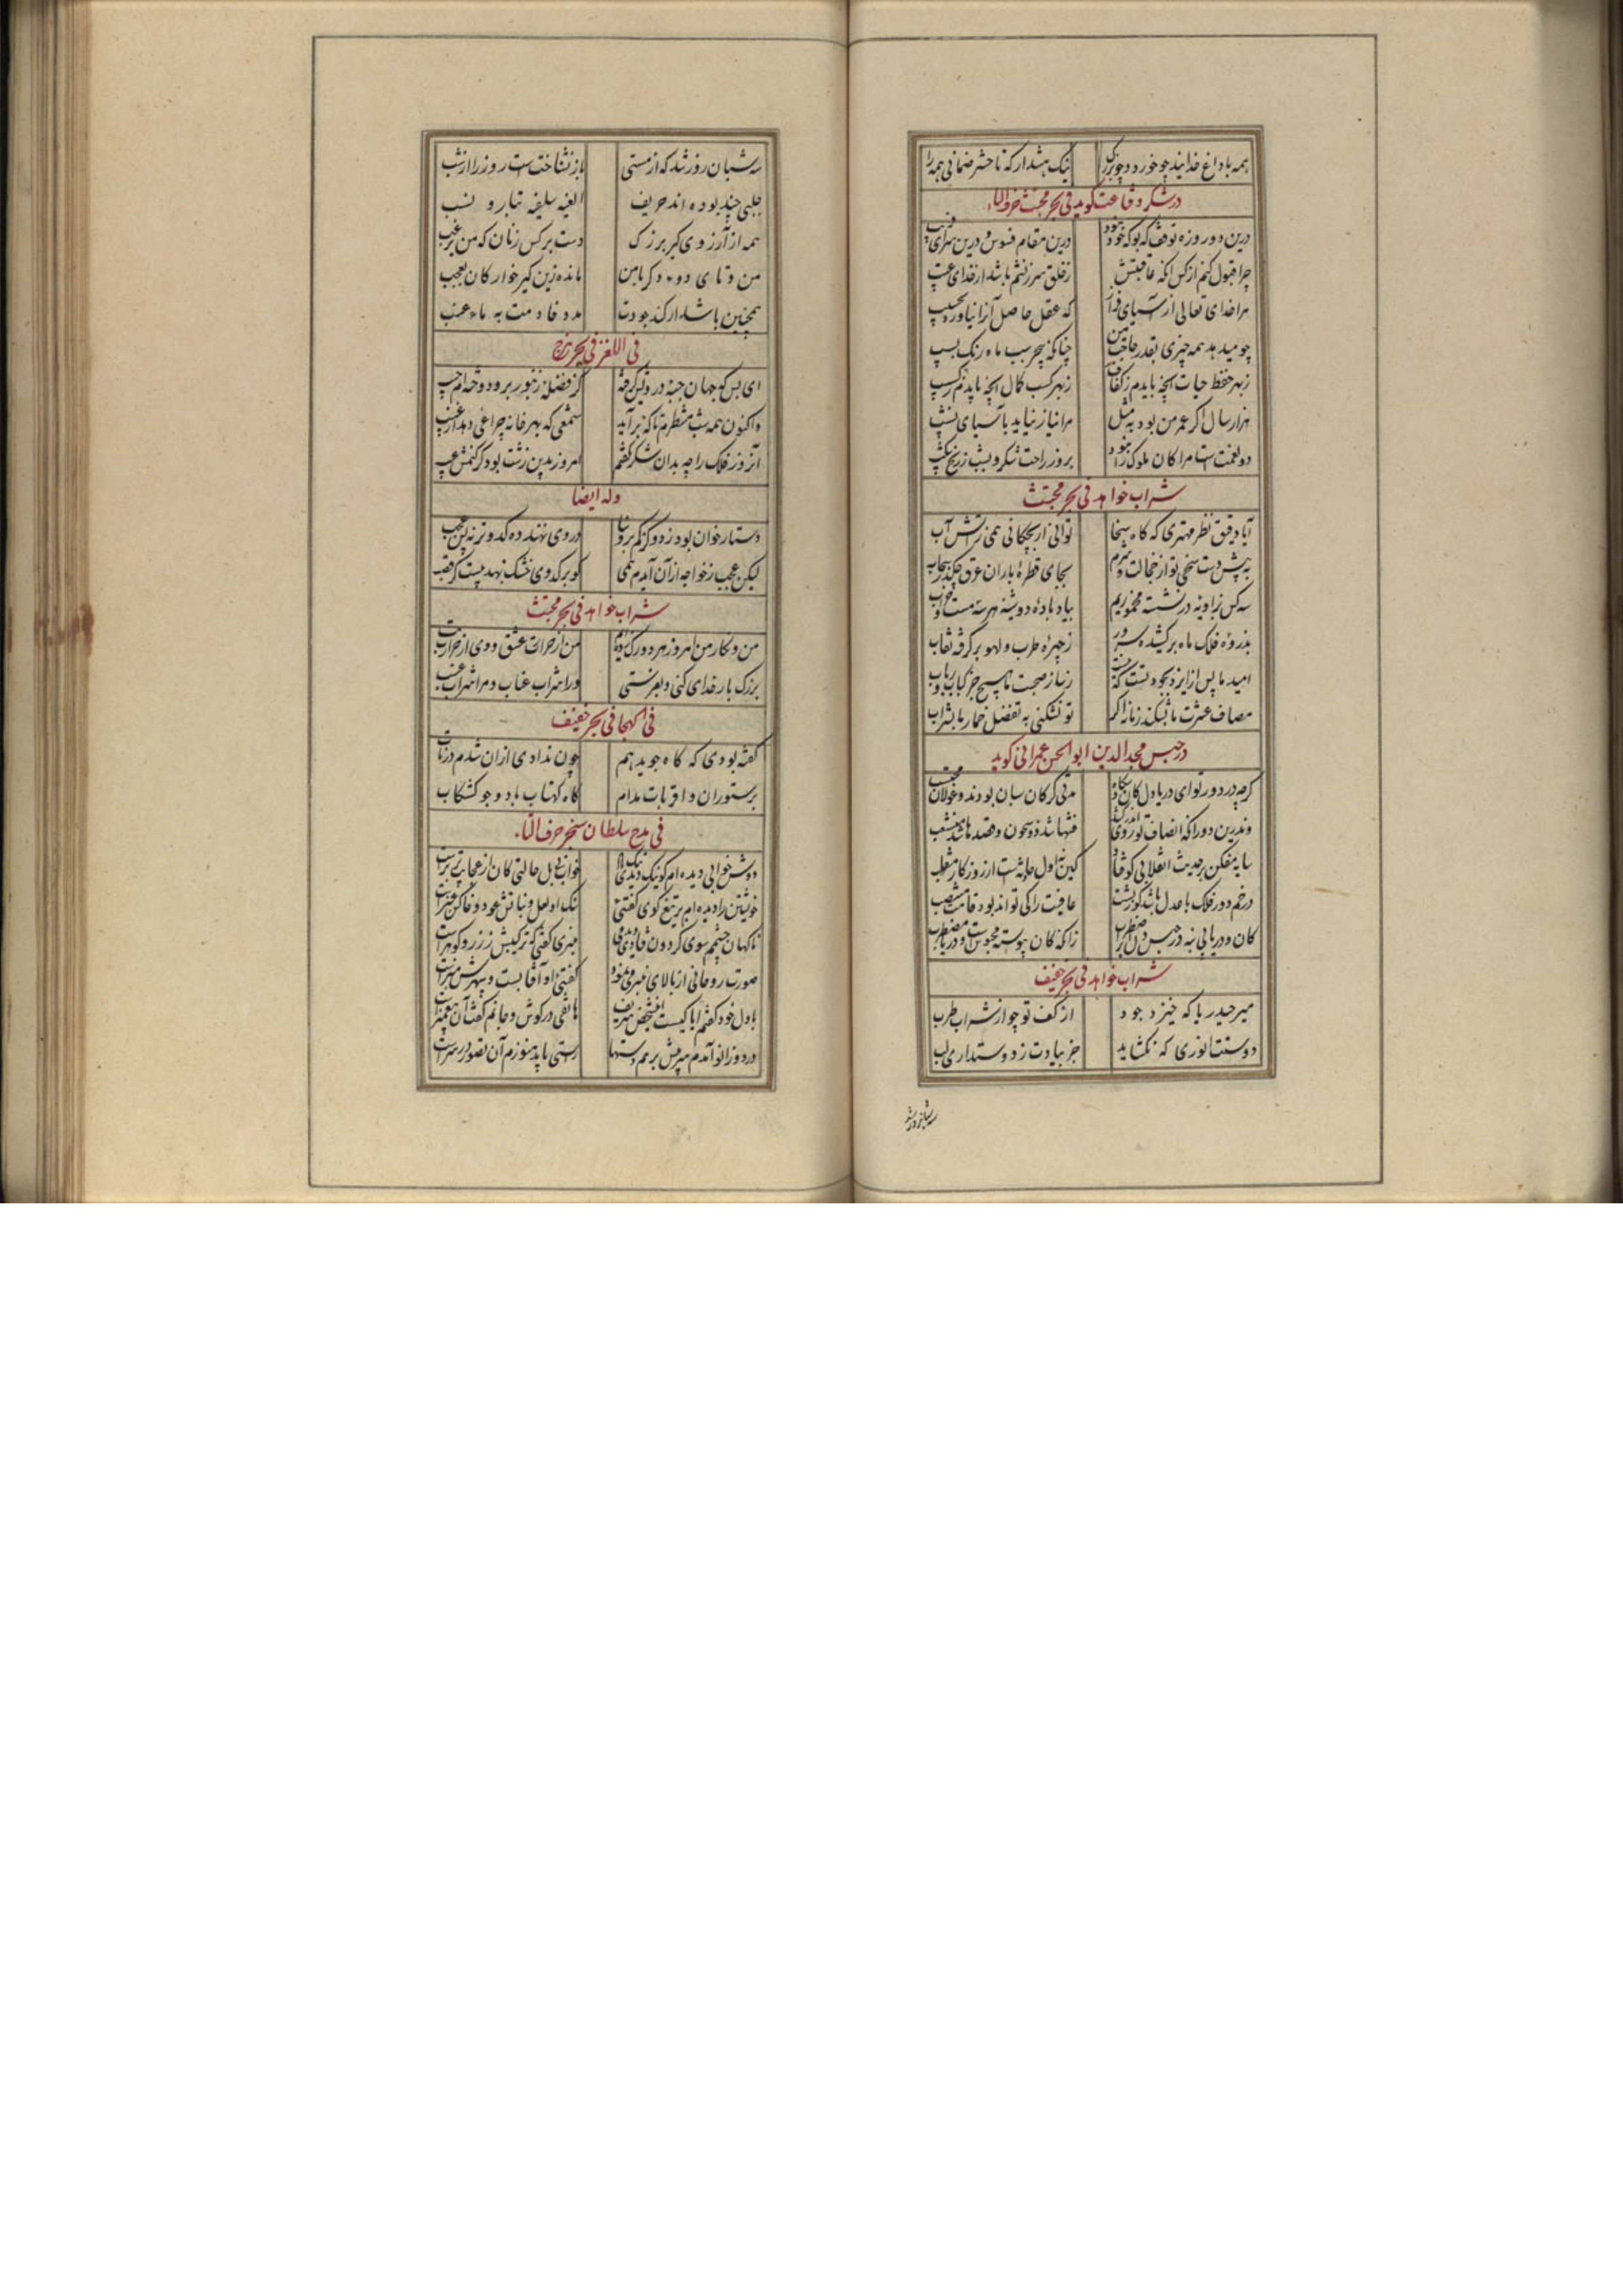 همه با داغ خدایند چه خورد و چه بزرگ نیک هشدار که تا حشر ضمانی همه را
در شکر و قناعت گوید فی بحر مجتث حرف الباء
درین دو روزه توقف که بوک خود نبود درین مقام فسوس و درین سرای فریب
چرا قبول کنم از کس آنکه عاقبتش ز خلق سرزنشم باشد از خدای عتیب
مرا خدای تعالی ز آسیای فراز که عقل حاصل آنرا نیاورد بحسیب
چو میدهد همه چیزی بقدر حاجت من چنانکه بی سبب ماه رنک سیب
ز بهر حفظ حیات آنچه بایدم ز کفاف ز بهر کسب کمال آنچه بایدم ز کتیب
هزار سال اگر عمر من بود به مثل مرا نیاز نیاید بآسیای نشیب
دو نعمت است مرا کان ملوک را نبود بروز راحت شکر و بشب ز رنج شکیب
شراب خواهد فی بحر مجتث
ایا دقیق نظر مهتری که گاه سخا توانی ار بچکانی همی ز آتش آب
به پیش دست سخی تو از خجالت و شرم بجای قطرهٔ باران عرق چکد ز سحاب
سه کس بزاویه در نشسته مخموریم بیاد بادهٔ دوشینه هر سه مست و خراب
بذروهٔ فلک ماه برکشیده سرور ز چهرهٔ طرب و لهو برگرفته نقاب
امید ما پس از ایزد بجود تست که نیست ز ساز صحبت ما هیچ جز کباب و رباب
مصاف عشرت ما بشکند زمانه اگر تو نشکنی به تفضل خمار ما بشراب
در حبس مجدالدین ابوالحسن عمرانی گوید
گرچه در دور تو ای دریا دل کان دستگاه مدتی گرگان شبان بودند و غولان محتسب
وندرین دوران که انصاف تو روی اندر کشید فتنها شد ذوشجون و قصدها شد منشعب
سایه مفکن بر حدیث انقلابی کاوفتاد کین نه اول حادثه است از روزگار منقلب
در خم دور فلک تا عدل باشد کوژپشت عافیت را کی تواند بود قامت منتصب
کان و دریائی نه در حبس دل و اضطراب زانکه کان پیوسته محبوس است و دریا مضطرب
شراب خواهد فی بحر خفیف
میر حیدر بیا که خیزد جود از کف تو چو از شراب طرب
دوستت انوری که نگشاید جز بیادت ز دوستداری لب
سه شبان روز شد
سه شبان روز شد که از مستی باز نشناخته است روز را از شب
جلبی چند بوده اند حریف الفیه سلفیه تبار و نسب
همه از آرزوی کیر بزرگ دست بر کس زنان که من یرغب
من و تائی دو سه دگر با من مانده زین کیرخوارگان بعجب
همچنین باشد ار کند جودت مدد فادمت به ماء عنب
فی اللغز فی بحر هزج
ای بس که جهان جبهٔ درویش گرفته کز فضلهٔ زنبور برو دوخته ام جیب
واکنون همه شب منتظرم تا که برآید شمعی که بهر خانه چراغی دهد از غیب
آنروز فلک را چو بدان شکر نگفتم امروز بدین زشت بود گر کنمش عیب
وله ایضا
دستارخوان بود ز دو گز کم بروستا در وی نهند ده کدو تر نه بس عجب
لیکن عجب ز خواجه از آن آیدم همی کو بر کدوی خشک نهد بیست گز قصب
شراب خواهد فی بحر مجتث
من و نگار من امروز هر دو من از خراب عشق و وی از خراب شراب
بزرگ بار خدای کنی و بفرستی ورا شراب عناب و مرا شراب عنب
فی الهجا فی بحر خفیف
گفته بودی که کاه و جو بدهم چون ندادی از آن شدم در تاب
بر ستوران و اقربات مدام کاه کهتاب باد و جو کشکاب
فی مدح سلطان سنجر حرف التاء
دوش خوابی دیده ام گو نیک دیدی نیک باد خواب نی بل حالتی کان از عجایب برترست
خویشتن را دیدمی بر تیغ کوهی گفتیی سنگ او لعل و نباتش عود و خاکش عنبرست
ناگهان چشمم سوی گردون فتادی دیدمی منبری گفتی که ترکیبش ز زر و گوهرست
صورت روحانی از بالای منبر می نمود گفتی او آفتابست و سپهرش منبرست
با دل خود گفتم آیا کیست این شخص شریف هاتفی در گوش جانم گفت آن پیغمبرست
در دو زانو آمدم سر پیش برهم دستها راستی باید هنوزم آن تصور در سرست